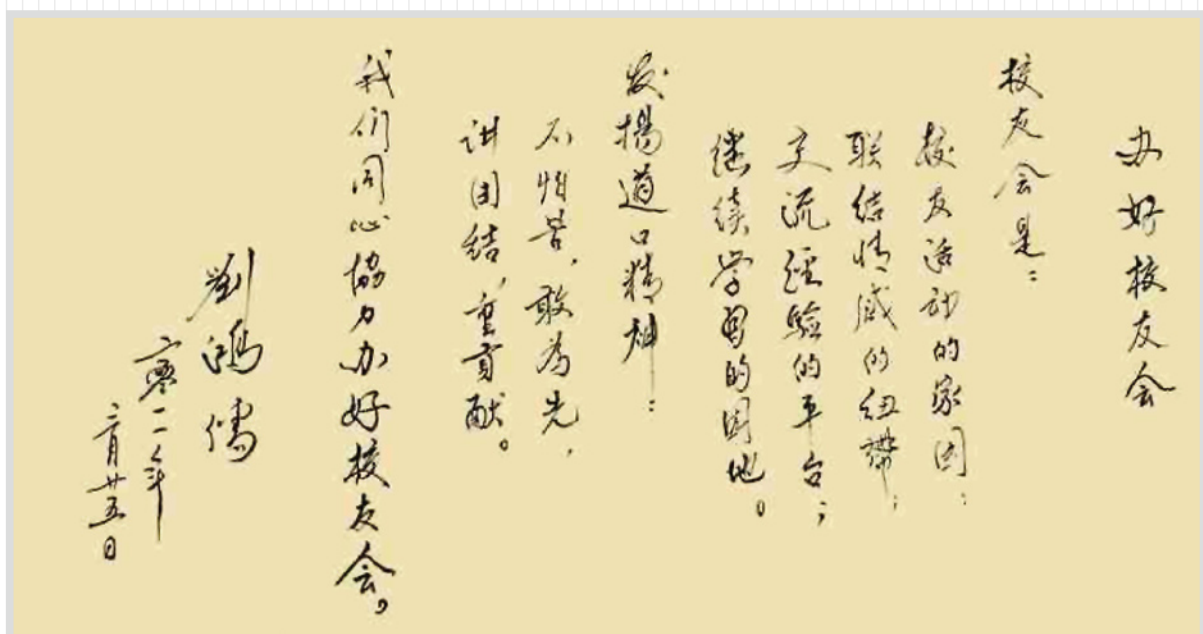 办好校友会
校友会是：
校友活动的家园；
联结情感的纽带；
交流经验的平台；
继续学习的园地。
发扬道口精神：
不怕苦，敢为先，
讲团结，重贡献。
我们同心协力办好校友会。
刘鸿儒
二零一一年
二月廿五日